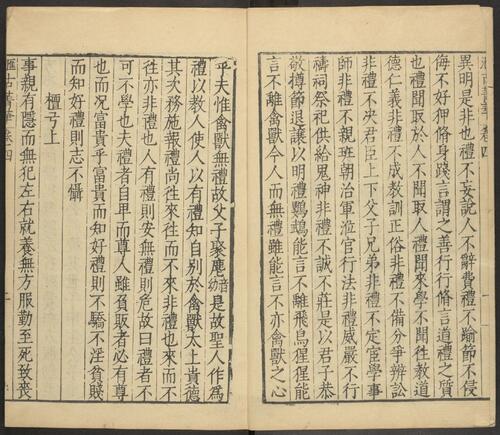 異明是非也禮不妄說人不辭費禮不踰節不侵
侮不好狎脩身踐言謂之善行行脩言道禮之質
也禮聞取於人不聞取人禮聞來學不聞往教道
德仁義非禮不成教訓正俗非禮不備分爭辨訟
非禮不決君臣上下父子兄弟非禮不定宦學事
師非禮不親班朝治軍涖官行法非禮威嚴不行
禱祠祭祀供給鬼神非禮不誠不莊是以君子恭
敬撙節退讓以明禮鸚鵡能言不離飛鳥猩猩能
言不離禽獸今人而無禮雖能言不亦禽獸之心
乎夫惟禽獸無禮故父子聚麀音幼是故聖人作爲
禮以教人使人以有禮知自別於禽獸太上貴德
其次務施報禮尚往來往而不來非禮也來而不
往亦非禮也人有禮則安無禮則危故曰禮者不
可不學也夫禮者自卑而尊人雖負販者必有尊
也而况富貴乎富貴而知好禮則不驕不淫貧賤
而知好禮則志不懾
檀弓上
事親有隱而無犯左右就養無方服勤至死致喪
滙古菁華 卷四